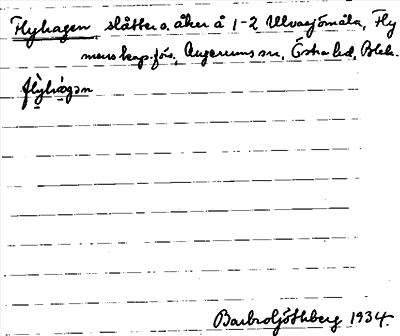 Flyhagen slåtter o. åker å 1-2 Ulvasjömåla, Fly
mens kap. förs., Augerums sn, Östra hd, Blek.
flỳhàgən
Barbro Göthberg 1934.